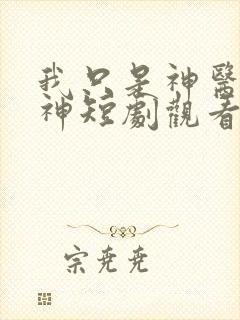 我只是神醫
神短劇觀看
宗堯堯